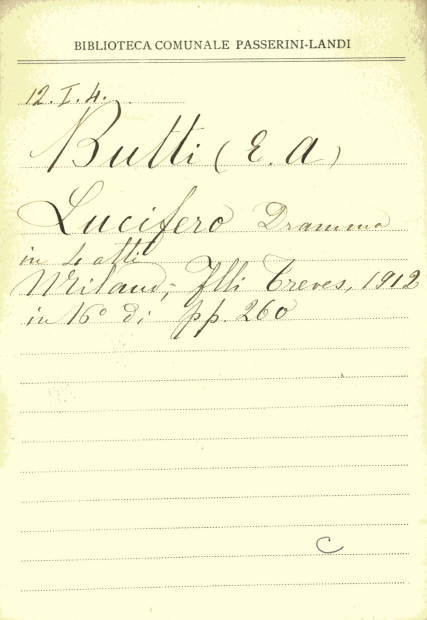 BIBLIOTECA COMUNALE PASSERINI-LANDI
12.I.4.
Butti (E. A)
Lucifero Dramma
in 4 atti
Milano, Flli Treves, 1912
in 16° di pp. 260
C